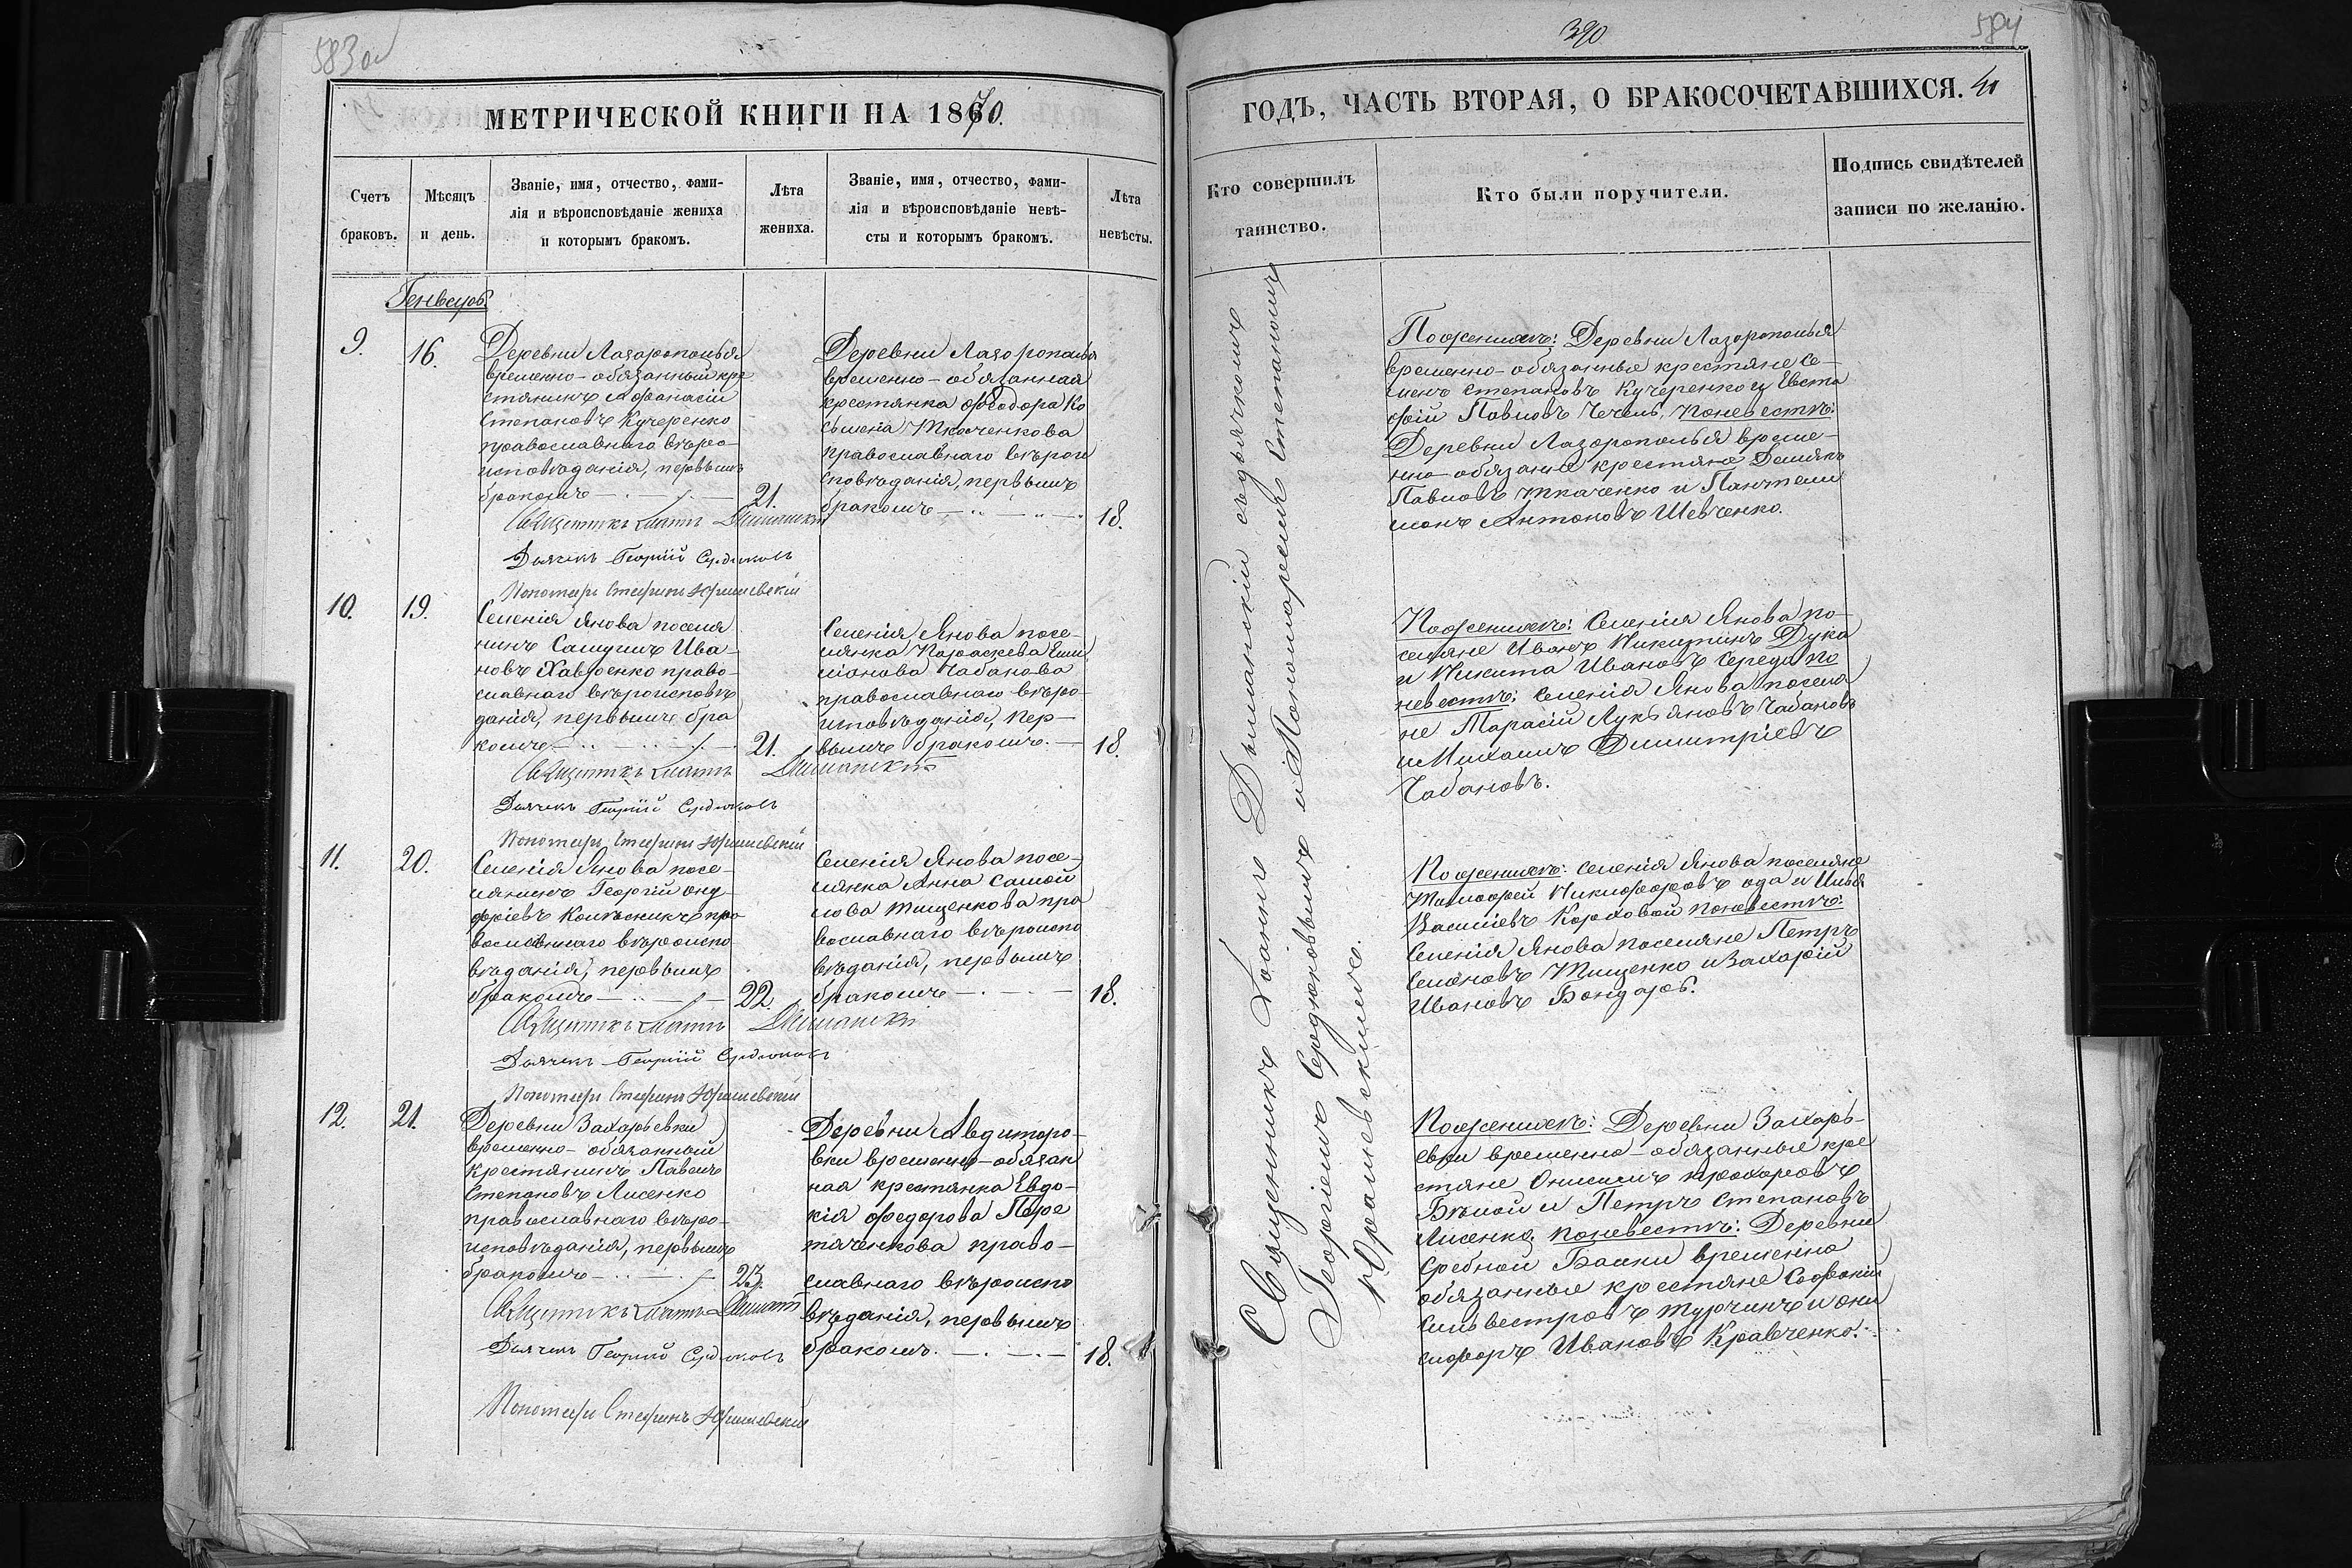 583 об
МЕТРИЧЕСКОЙ КНИГИ НА 1870.
Счетъ
браковъ.
Мѣсяцъ
и день.
Званіе, имя, отчество, фами-
лія и вѣроисповѣданіе жениха
и которымъ бракомъ.
Лѣта
жениха.
Званіе, имя, отчество, фами-
лія и вѣроисповѣданіе невѣ-
сты и которымъ бракомъ.
Лѣта
невѣсты.
Генварь
9.
16.
Деревни Лазарополья
временно-обязанный кре
стянинъ Афонасій
Степановъ Кучеренко
православнаго вѣро-
исповѣданія, первымъ
бракомъ
21.
Деревни Лазорополья
временно-обязанная
крестянка Феодора Ко
Ткаченкова
православнаго вѣрои
сповѣданія, первымъ
бракомъ
18.
Священникъ Іоаннъ Дыманскій
Дьячекъ Георгій Сердюковъ
Пономарь Стефанъ Юрашевскій
10.
19.
Селенія Янова поселя
нинъ Самуилъ Ива-
новъ Хавроенко право-
славнаго вѣроисповѣ
данія, первымъ бра
комъ
21.
Селенія Янова посе-
лянка Параскева Еми
ліанова Чабанова
православнаго вѣро-
исповѣданія, пер-
вымъ бракомъ.
18.
Священникъ Іоаннъ Дыманскій
Дьячекъ Георгій Сердюковъ
Пономарь Стефанъ Юрашевскій
11.
20.
Селенія Янова посе-
лянинъ Георгій Онуу-
фріевъ Колѣсникъ пра
вославнаго вѣроиспо
вѣданія, первымъ
бракомъ
22.
Селенія Янова посе-
лянка Анна Самой
лова Тищенкова пра
вославнаго вѣроиспо
вѣданія, первымъ
бракомъ
18.
Священникъ Іоаннъ Дыманскій
Дьячекъ Георгій Сердюковъ
Пономарь Стефанъ Юрашевскій
12.
21.
Деревни Захарьевки
временно-обязанный
крестянинъ Павелъ
Степановъ Лисенко
православнаго вѣро-
исповѣданія, первымъ
бракомъ
23.
Деревни Авдиторо-
вки временно-обязан
ная крестянка Евдо-
кія Федорова Пере
тяченкова право-
славнаго вѣроиспо
вѣданія, первымъ
бракомъ.
18.
Священникъ Іоаннъ Дыманскій
Дьячекъ Георгій Сердюковъ
Пономарь Стефанъ Юрашевскій
390
584
ГОДЪ, ЧАСТЬ ВТОРАЯ, О БРАКОСОЧЕТАВШИХСЯ.
Кто совершилъ
таинство.
Кто были поручители.
Подпись свидѣтелей
записи по желанію.
Священникъ Іоаннъ Дыманскій съ дьячкомъ
Георгіемъ Сердюковымъ и Пономаремъ Стефаномъ
Юрашевскимъ.
По женихѣ: Деревни Лазорополья
временно-обязанные крестяне Се-
менъ Степановъ Кучеренко и Евста
фій Павловъ Чечель, по невестѣ:
Деревни Лазорополья време-
нно-обязаные крестяне Демянъ
Павловъ Ткаченко и Пантели
монъ Антоновъ Шевченко.
По женихѣ: Селенія Янова по-
селяне Иванъ Никитинъ Дука
и Никита Ивановъ Середа по
невестѣ: Селенія Янова поселя
не Тарасій Лукьяновъ Чабановъ
и Михаилъ Димитріевъ
Чабановъ.
По женихѣ: селенія Янова поселяне
Тимофей Никифоровъ Ода и Илья
Василіевъ Корховой по невестѣ:
Селенія Янова поселяне Петръ
Семеновъ Тищенко и Захарій
Ивановъ Бондарь.
По женихѣ: Деревни Захарь-
евки временно-обязанные кре
стяне Онисимъ Прохоровъ
Бѣлой и Петръ Степановъ
Лисенко, по невестѣ: Деревни
Средной Балки временно
обязанные крестяне Софроній
Сильвестровъ Турчинъ и Они
сифоръ Ивановъ Кравченко.